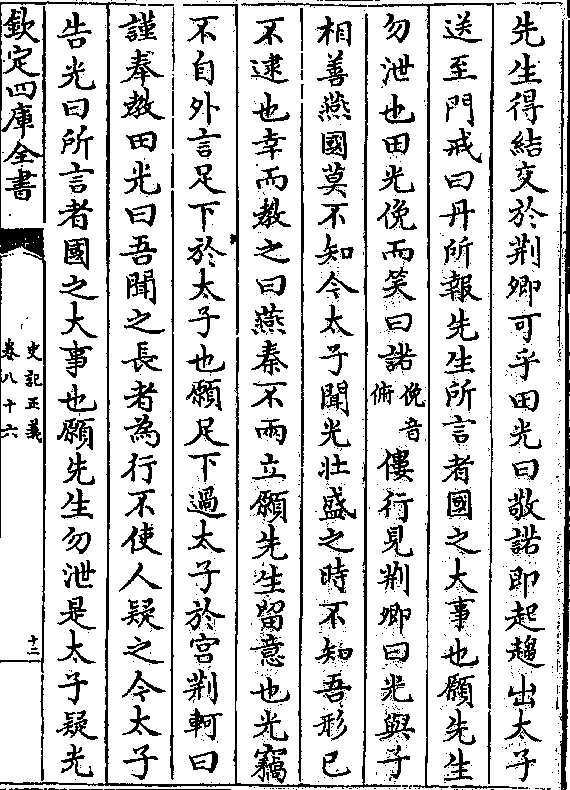 先生得結交於荆卿可乎田光曰敬諾即起趨出太子
送至門戒曰丹所報先生所言者國之大事也願先生
勿泄也田光俛而笑曰諾俛音俯僂行見荆卿曰光與子
相善燕國莫不知今太子聞光壯盛之時不知吾形已
不逮也幸而教之曰燕秦不兩立願先生留意也光竊
不自外言足下於太子也願足下過太子於宫荆軻曰
謹奉教田光曰吾聞之長者為行不使人疑之今太子
告光曰所言者國之大事也願先生勿泄是太子疑光
欽定四庫全書
史記正義
卷八十六
十二